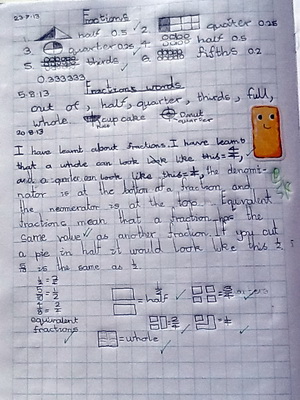 23.7.13 Fractions
half 0.5 2. quarter 0.25
3. quarter 0.25 4. half 0.5
5. thirds 6. fifths 0.2
0.333333
5.8.13 Fractions words
out of, half, quarter, thirds, full,
whole. cup cake Donut
quarter
20.8.13
I have learnt about fractions. I have learnt
that a whole can look look like this=4/4,
and a quarter can look like this=1/4, the denomi-
nator is at the bottom of a fraction, and
the neomerator is at the top. Equivalent
fractions mean that a fraction has the
same value as another fraction. If you cut
a pie in half it would look like this 1/2
is the same as 1/2.
equivalent
fractions
=half
=whole